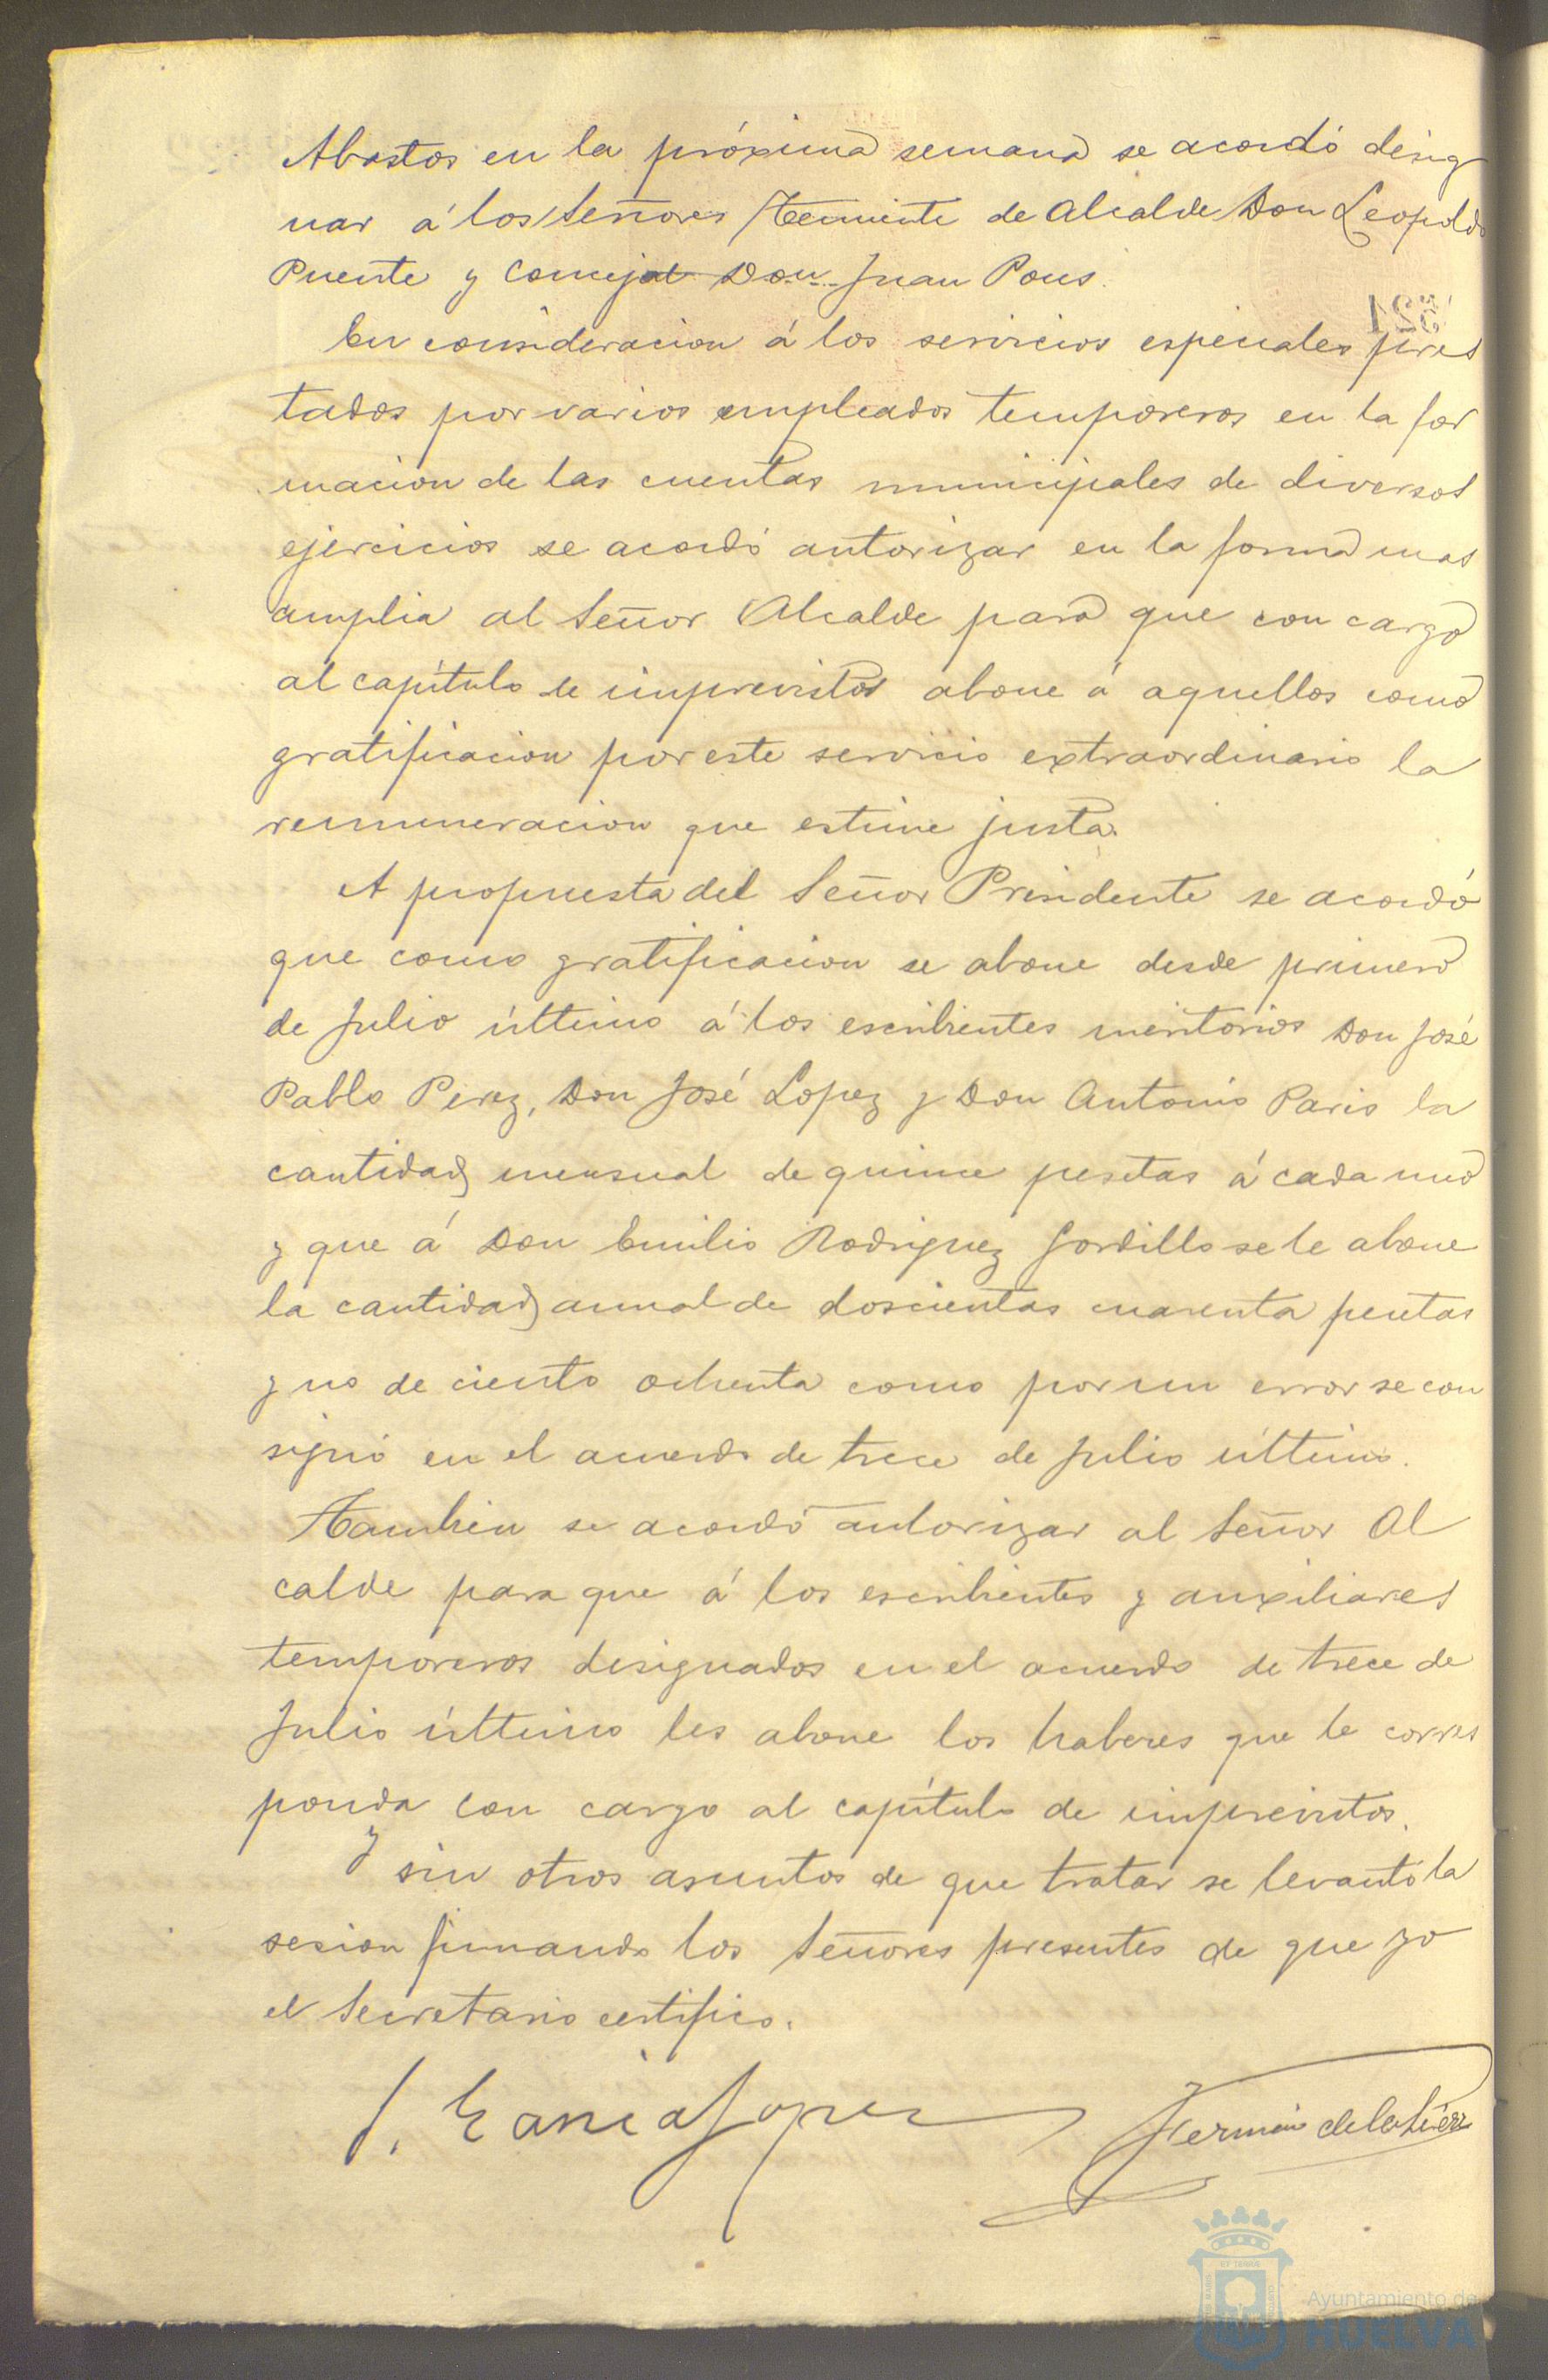 Abastos en la próxima semana se acordó desig
nar á los Señores Teniente de Alcalde Don Leopoldo
Puente y Concejal Don Juan Pons.
En consideracion á los servicios especiales pres
tados por varios empleados temporeros en la for
macion de las cuentas municipales de diversos
ejercicios se acordó autorizar en la forma mas
amplia al Señor Alcalde para que con cargo
al capítulo de imprevistos abone á aquellos como
gratificacion por este servicio extraordinario la
remuneracion que estime justa.
A propuesta del Señor Presidente se acordó
que como gratificacion se abone desde primero
de Julio último á los escribientes meritorios Don José
Pablo Perez, Don José Lopez y Don Antonio Paris la
cantidad mensual de quince pesetas á cada uno
y que á Don Emilio Rodriguez Gordillo se le abone
la cantidad anual de doscientas cuarenta pesetas
y no de ciento ochenta como por un error se con
signó en el acuerdo de trece de Julio último.
Tambien se acordó autorizar al Señor Al
calde para que á los escribientes y auxiliares
temporeros designados en el acuerdo de trece de
Julio último les abone los haberes que le corres
ponda con cargo al capítulo de imprevistos.
Y sin otros asuntos de que tratar se levantó la
sesion firmando los Señores presentes de que yo
el Secretario certifico.
J. Garcia Lopez
Fermín de la Sierra
Ayuntamiento de
HUELVA